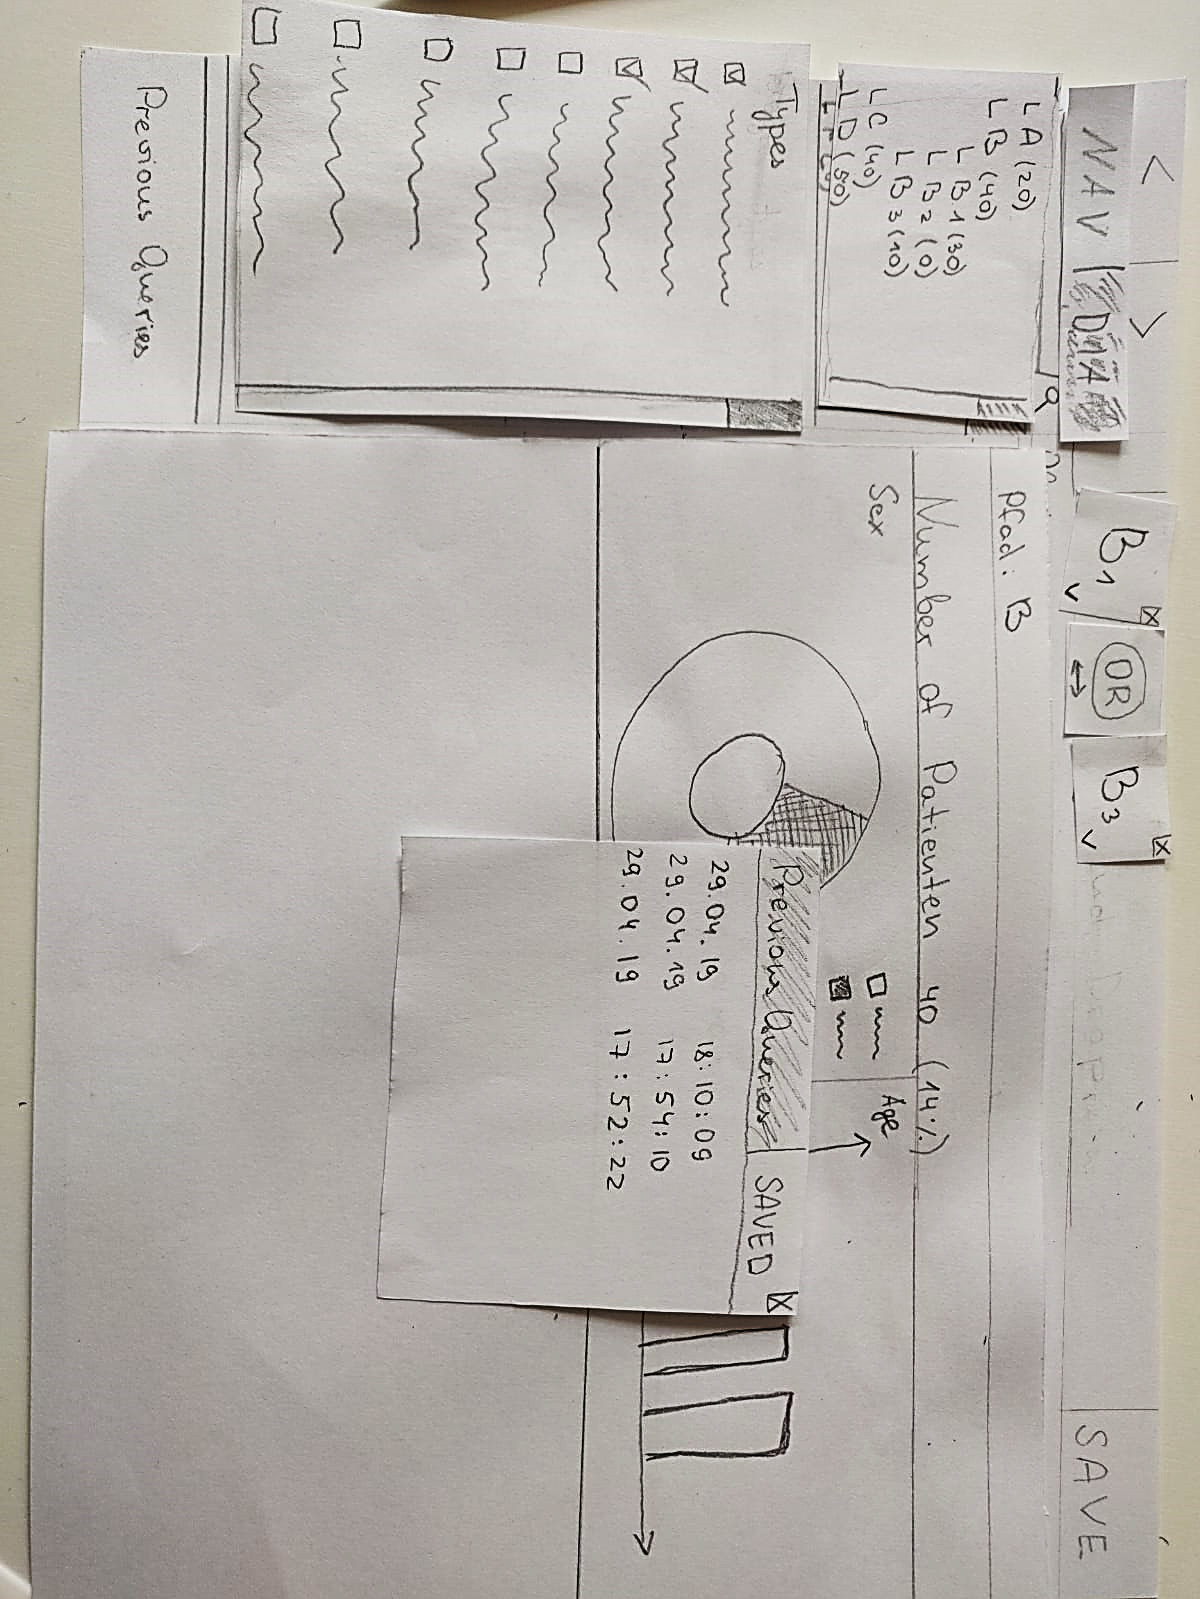 < >
B1
OR
B3
SAVE
NAV DNA
L A (20)
L B (40)
L B1 (30)
L B2 (0)
L B3 (10)
L C (40)
L D (50)
Types
Previous Queries
Pfad: B
Number of Patienten 40 (14%)
Sex
Age
Previous Queries SAVED
29.04.19 18:10:09
29.04.19 17:54:10
29.04.19 17:52:22